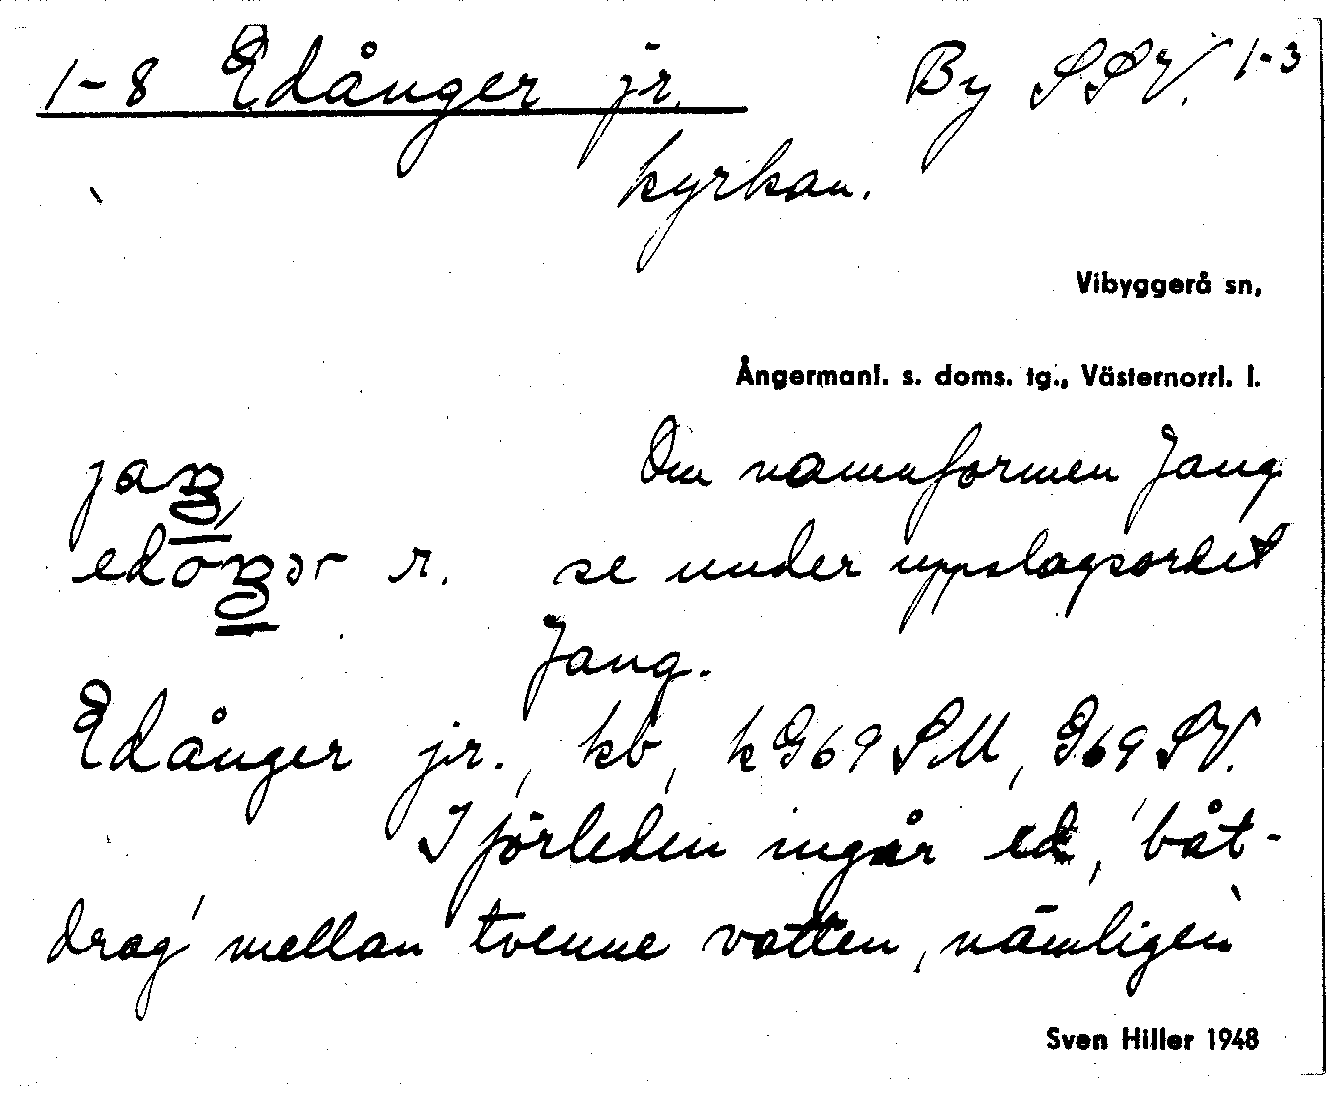 1-8 Edånger jr. By SSV. 1-3
kyrkan.
Vibyggerå sn,
Ångermanl. s. doms. tg., Västernorrl. l.
jaŋ, Om namnformen Jang
edåŋər r. se under uppslagsordet
Jang.
Edånger jr., kb, k G69 SM, G69 SV.
I förleden ingår ed, 'båt-
drag' mellan tvenne vatten, nämligen
Sven Hiller 1948